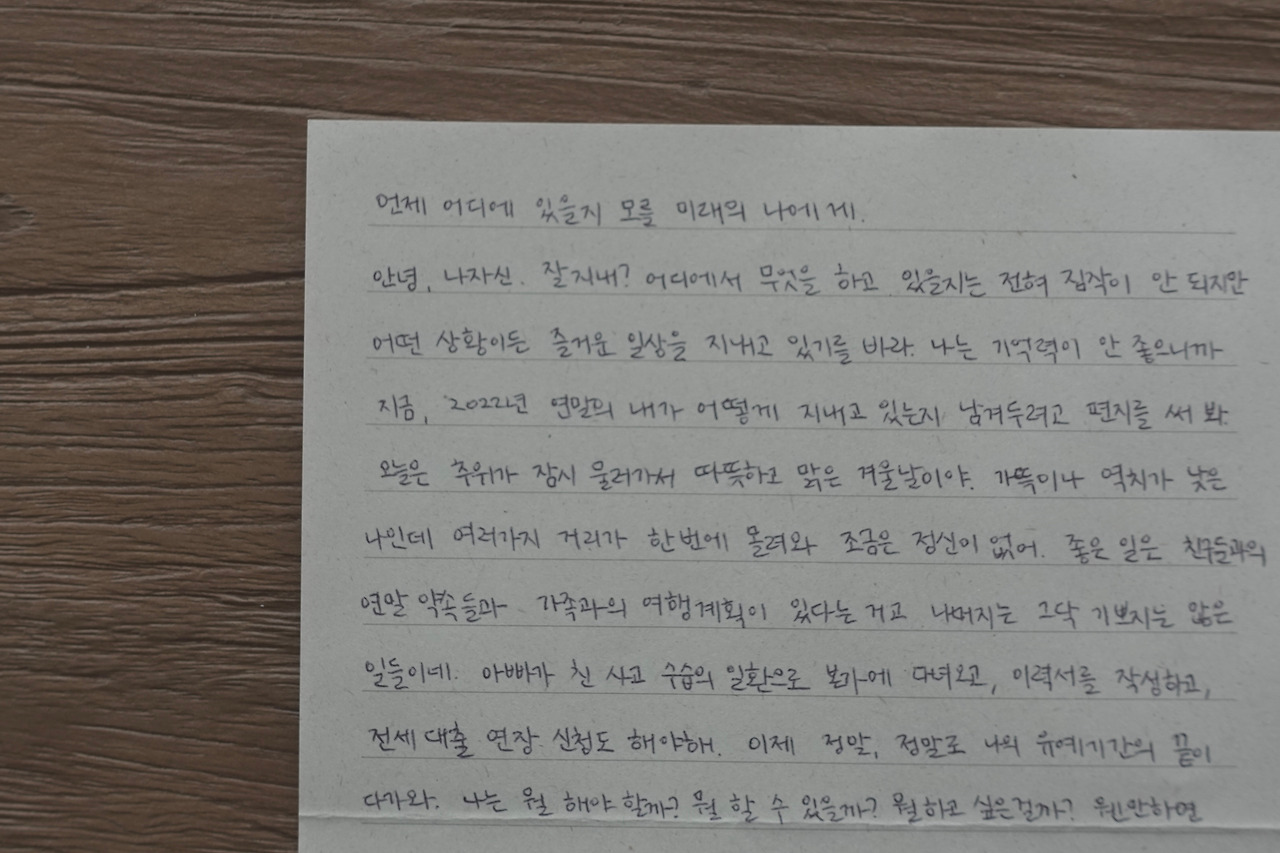 언제 어디에 있을지 모를 미래의 나에게.
안녕, 나자신. 잘지내? 어디에서 무엇을 하고 있을지는 전혀 짐작이 안 되지만
어떤 상황이든 즐거운 일상을 지내고 있기를 바라. 나는 기억력이 안 좋으니까
지금, 2022년 연말의 내가 어떻게 지내고 있는지 남겨두려고 편지를 써 봐.
오늘은 추위가 잠시 물러가서 따뜻하고 맑은 겨울날이야. 가뜩이나 역치가 낮은
나인데 여러가지 거리가 한번에 몰려와 조금은 정신이 없어. 좋은 일은 친구들과의
연말 약속들과 가족과의 여행계획이 있다는 거고 나머지는 그닥 기쁘지는 않은
일들이네. 아빠가 친 사고 수습의 일환으로 본가에 다녀오고, 이력서를 작성하고,
전세대출 연장 신청도 해야해. 이제 정말, 정말로 나의 유예기간의 끝이
다가와. 나는 뭘 해야 할까? 뭘 할 수 있을까? 뭘하고 싶은걸까? 웬만하면